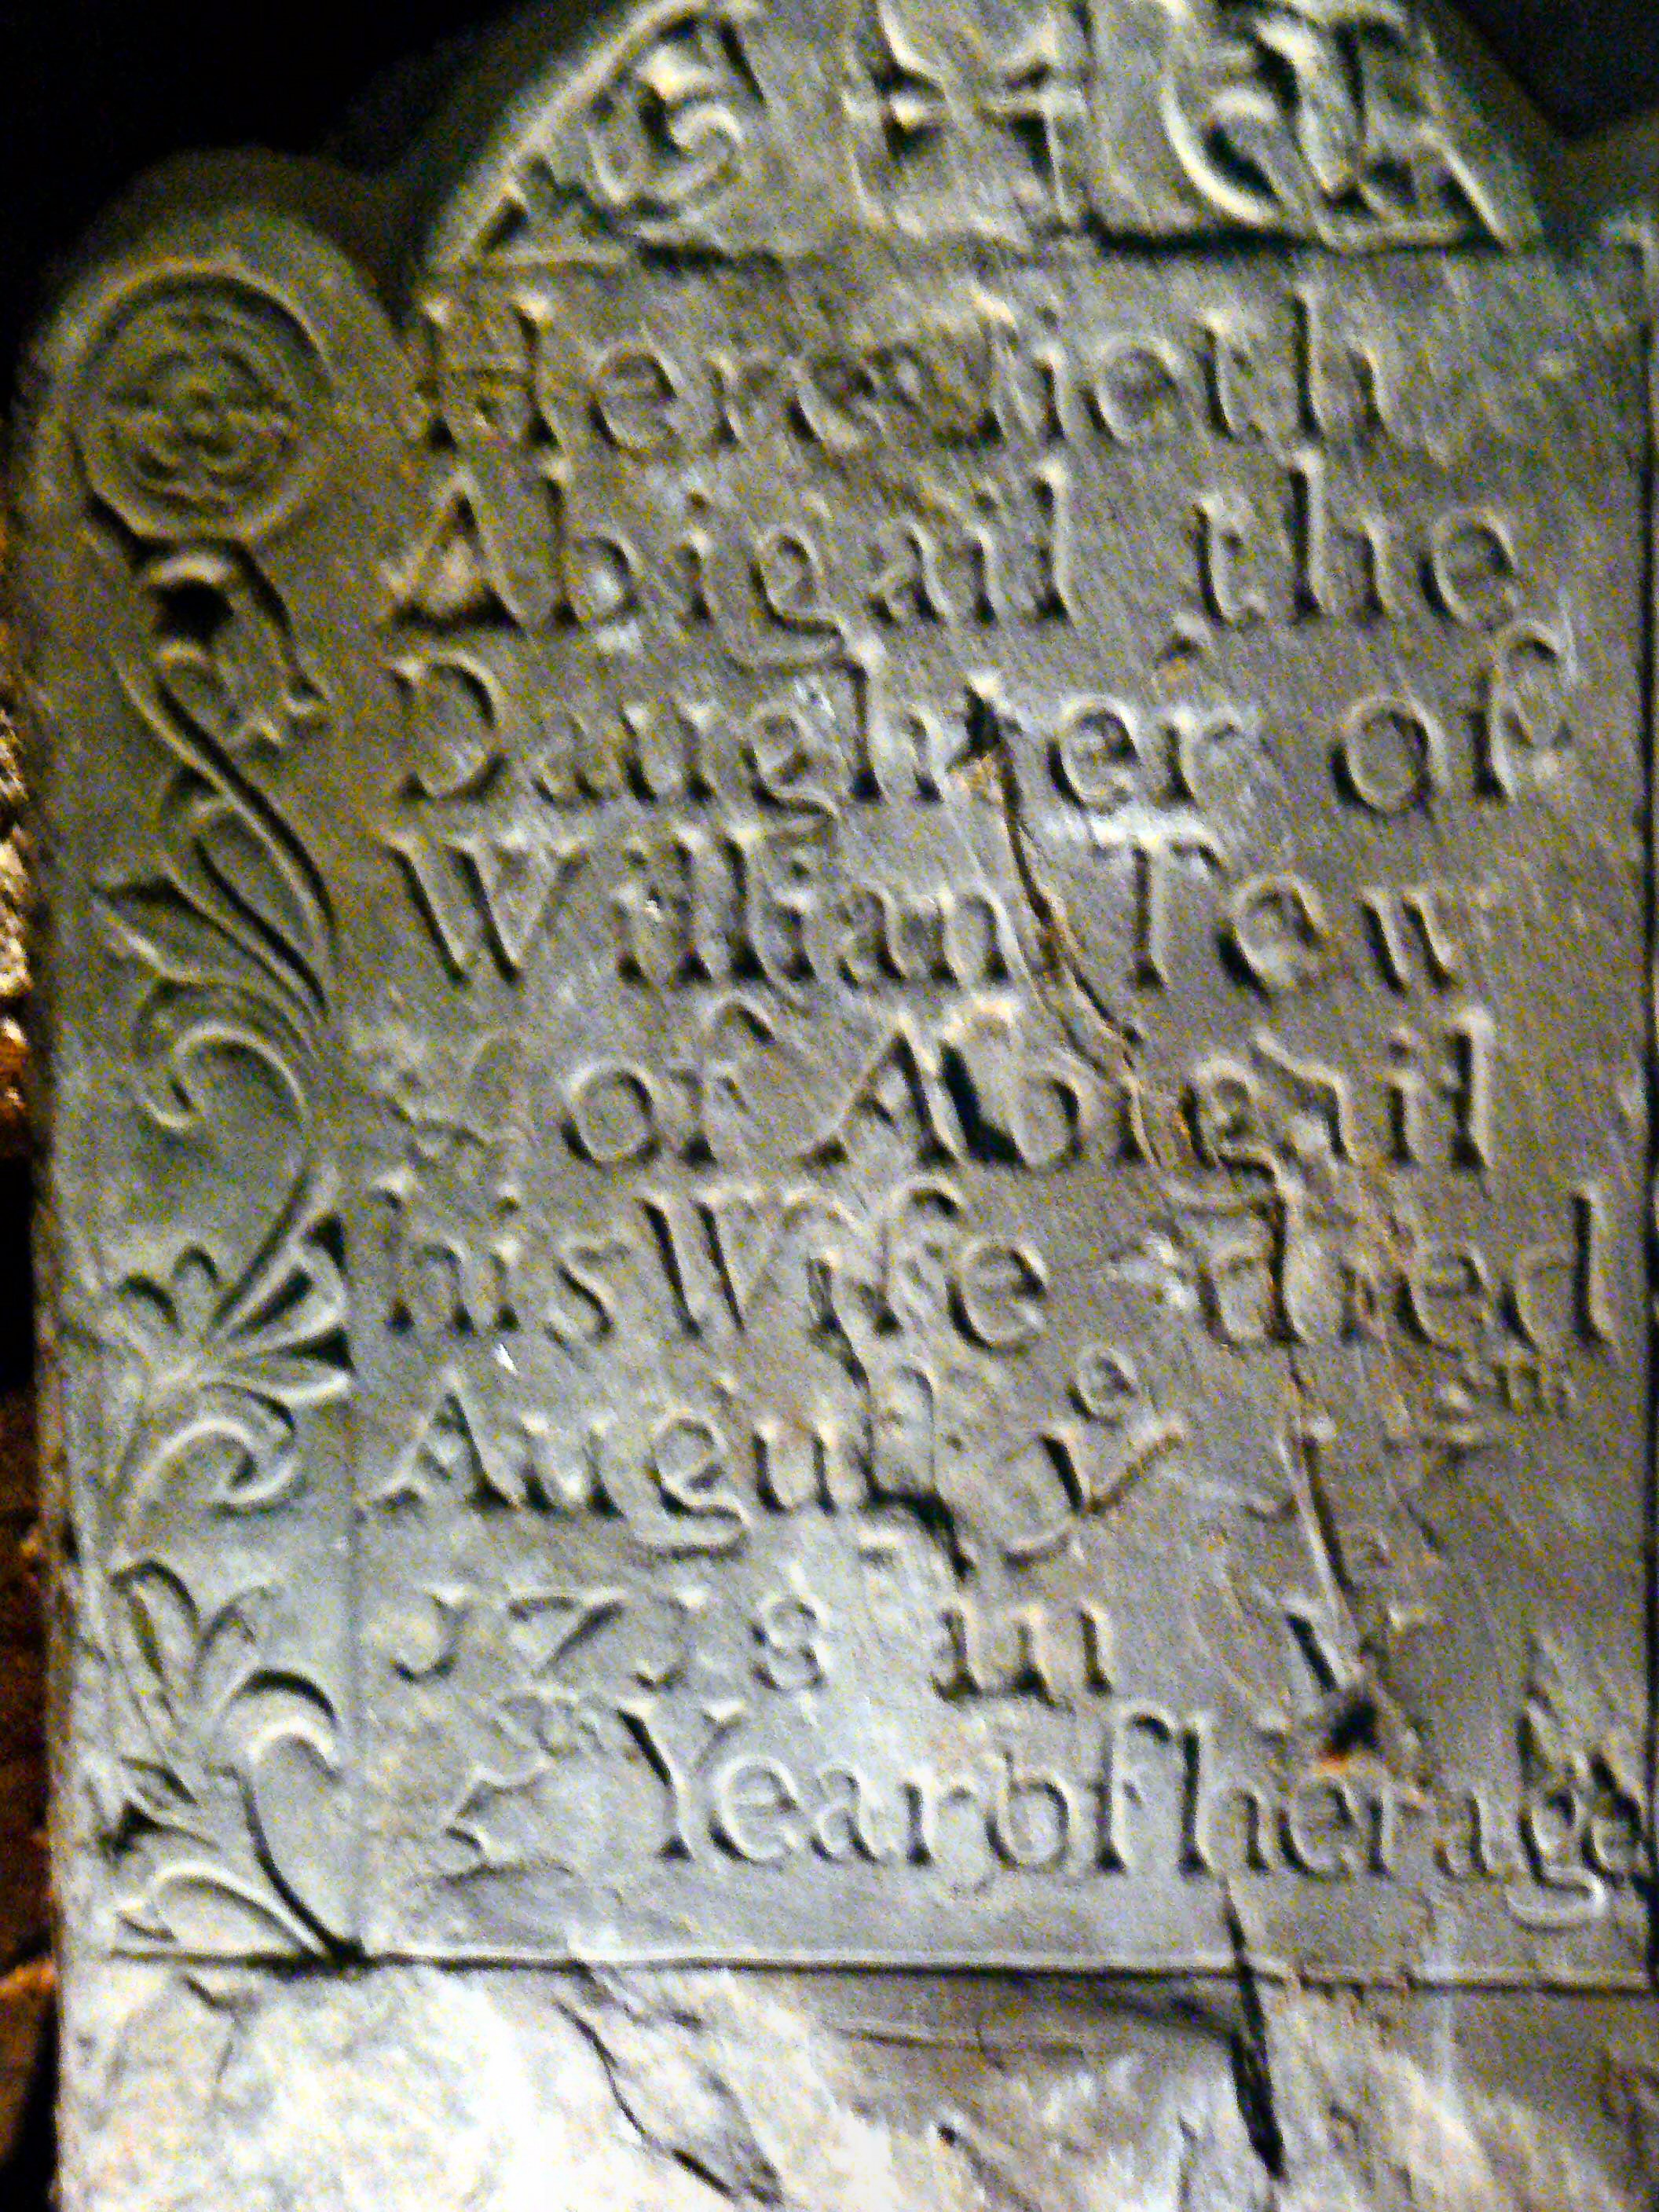 Here lieth
Abigail the
Daughter of
William Tew
& of Abigail
his Wife died
August yᵉ
1718 in yᵉ
Year of her age